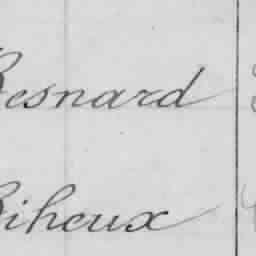 Besnard
Biheux